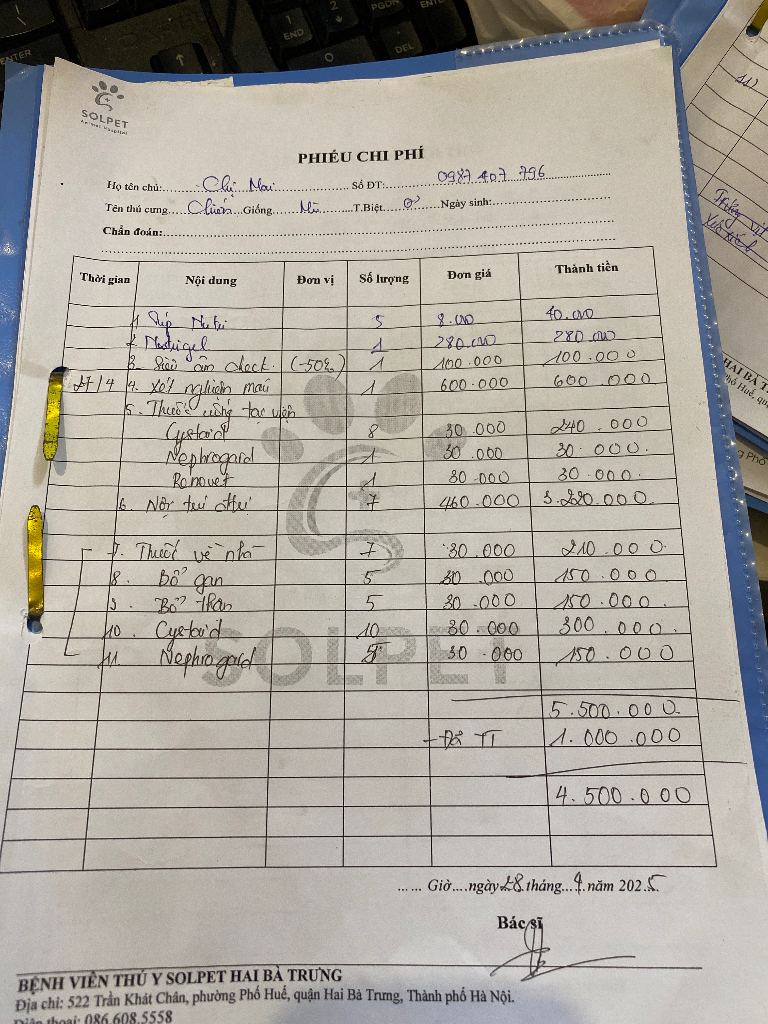 SOLPET
Animal Hospital
PHIẾU CHI PHÍ
Họ tên chủ: Chị Mai Số ĐT: 0987 407 796
Tên thú cưng Giống T.Biệt ♂ Ngày sinh:
Chẩn đoán:
Thời gian Nội dung Đơn vị Số lượng Đơn giá Thành tiền
1. 5 8.000 40.000
2. Nutrigel 1 280.000 280.000
3. Siêu âm check (-50%) 1 100.000 100.000
27/4 4. Xét nghiệm máu 1 600.000 600.000
5. Thuốc uống tại viện
Cystaid 8 30.000 240.000
Nephrogard 1 30.000 30.000
Ronovet 1 30.000 30.000
6. Nội trú 7 460.000 3.220.000
7. Thuốc về nhà 7 30.000 210.000
8. Bổ gan 5 30.000 150.000
9. Bổ thận 5 30.000 150.000
10. Cystaid 10 30.000 300.000
11. Nephrogard 5 30.000 150.000
SOLPET
5.500.000
- Đã TT 1.000.000
4.500.000
...... Giờ....ngày 28 tháng...4 năm 2025
Bác sĩ
BỆNH VIỆN THÚ Y SOLPET HAI BÀ TRƯNG
Địa chỉ: 522 Trần Khát Chân, phường Phố Huế, quận Hai Bà Trưng, Thành phố Hà Nội.
Điện thoại: 086.608.5558
11)
HAI BÀ T
phố Huế, qu
g Phố
ENTER
1
END
0
PGDN
.
DEL